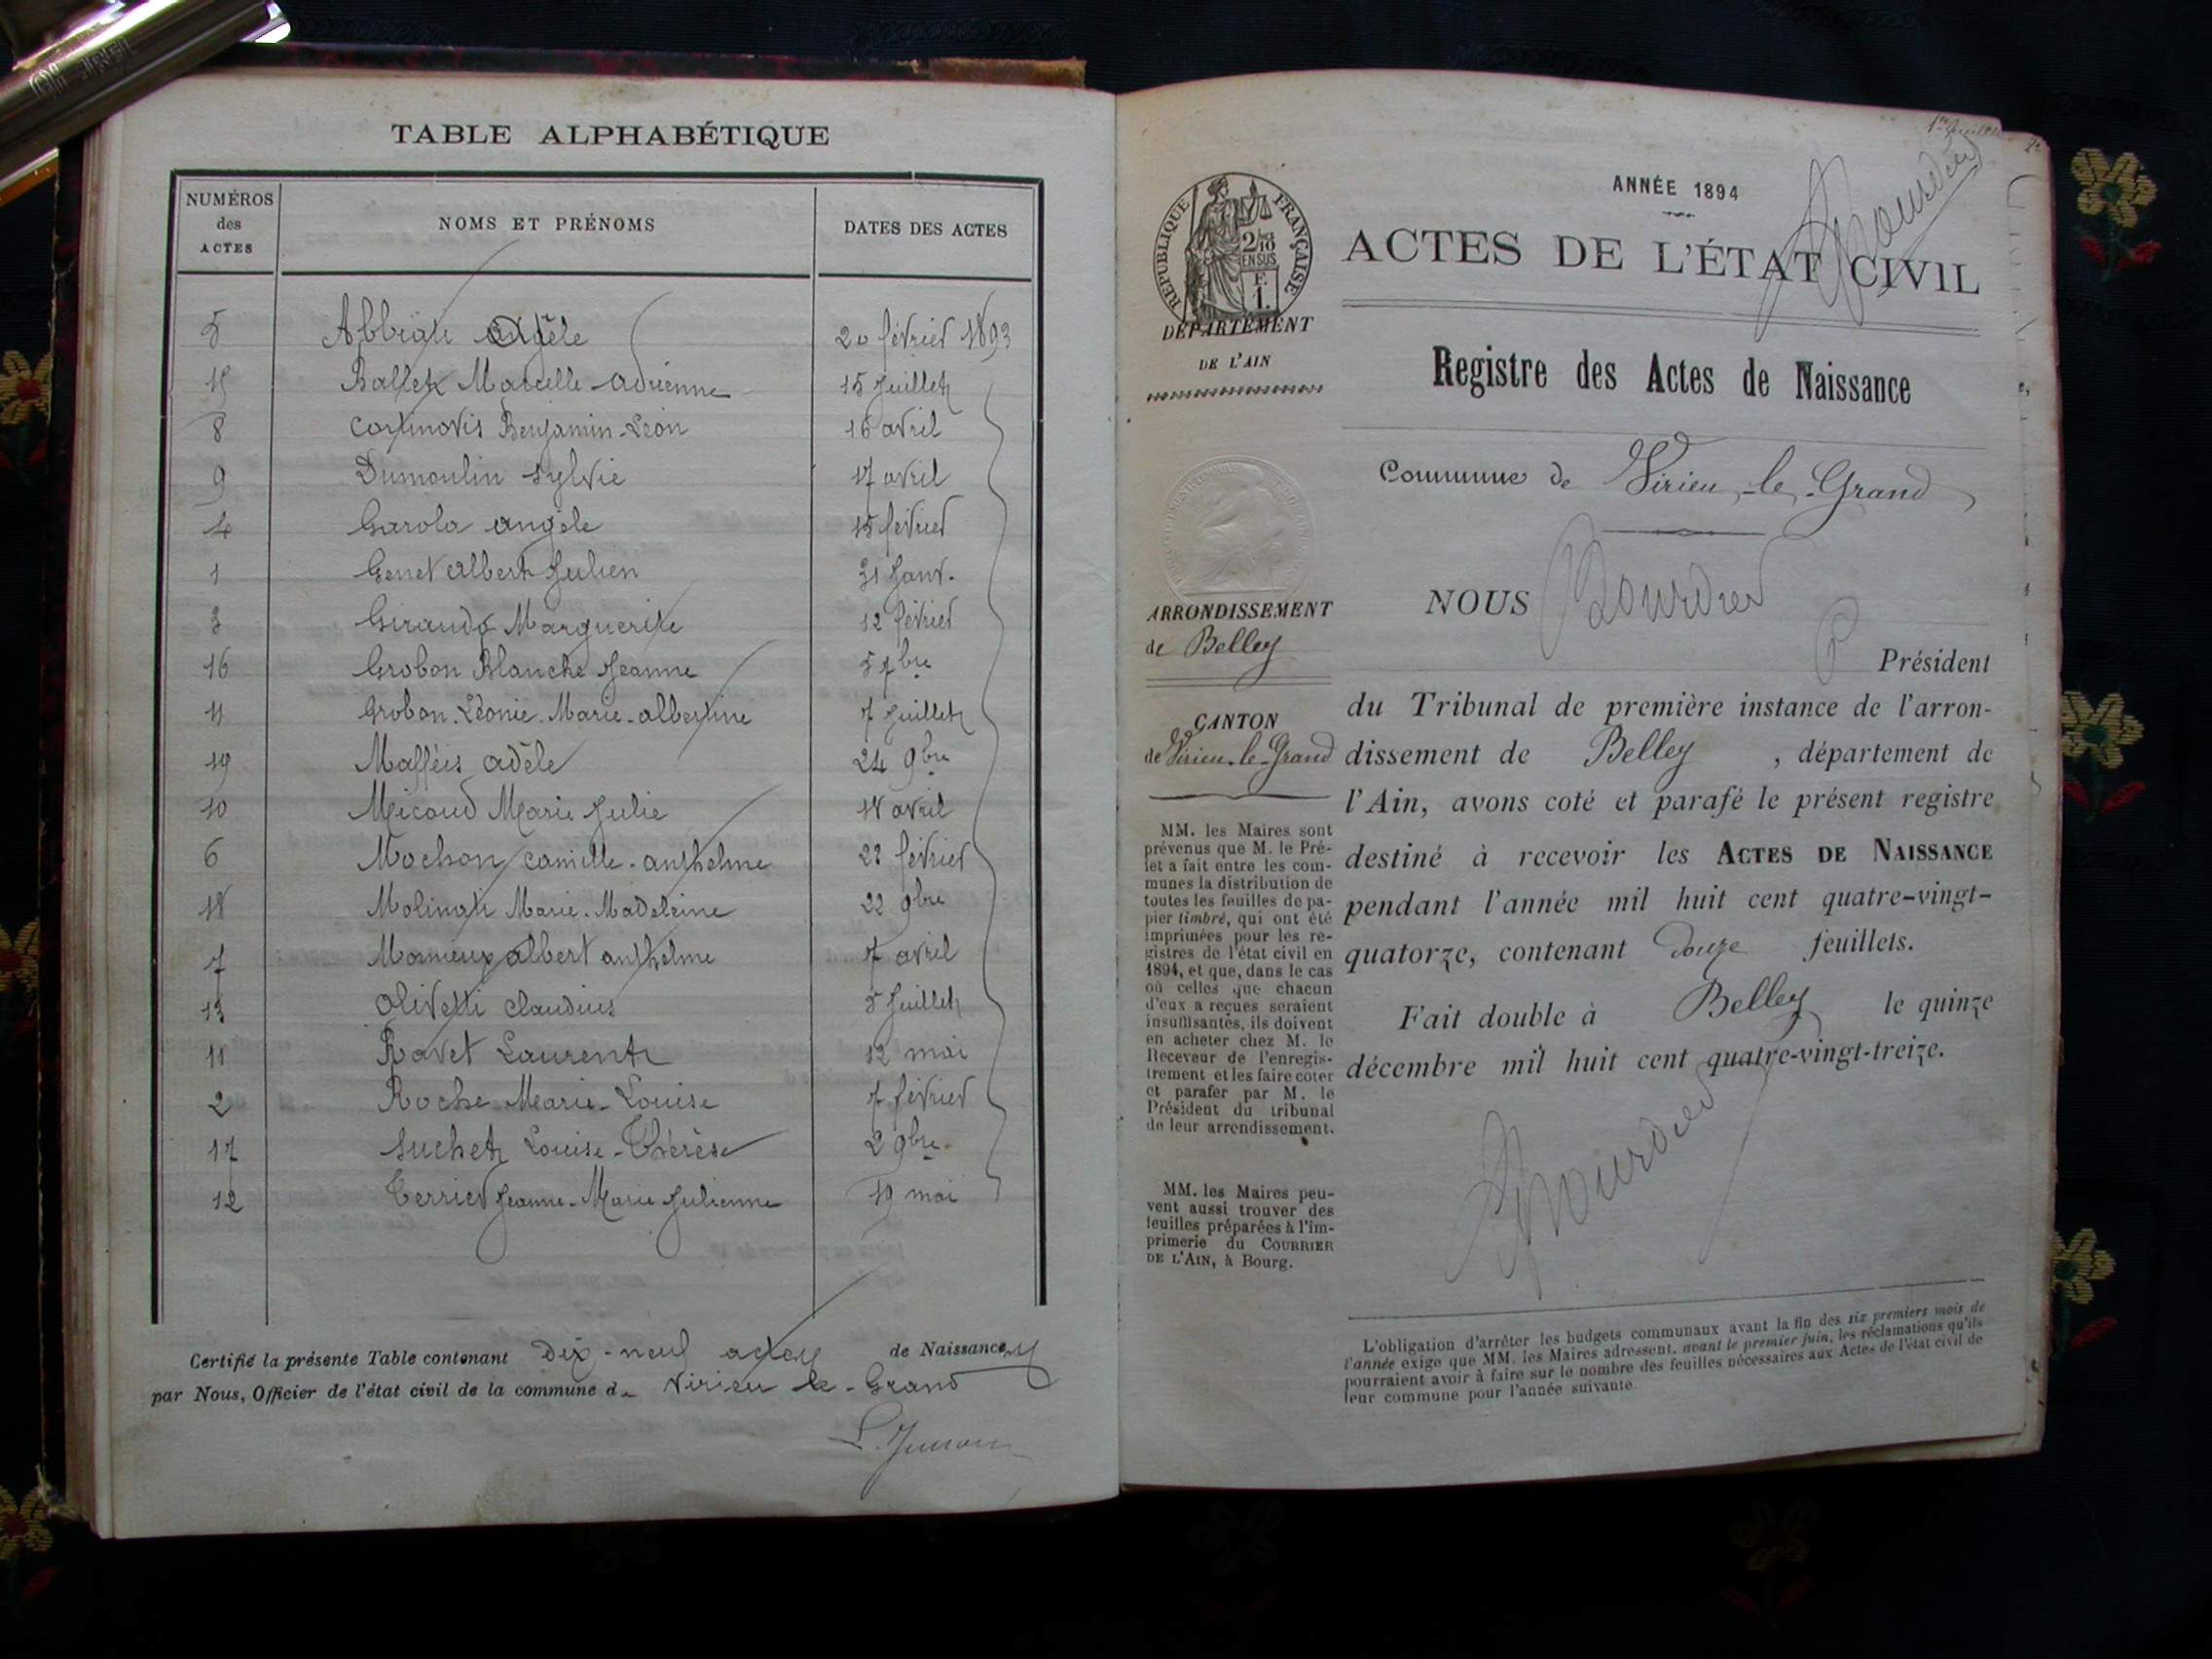 TABLE ALPHABÉTIQUE
NUMÉROS des ACTES NOMS ET PRÉNOMS DATES DES ACTES
5 Adèle 20 février 1893
15 Ballet Marcelle-Adrienne 15 Juillet
8 Cortinovis Benjamin-Léon 16 avril
9 Dumoulin Sylvie 17 avril
4 Garola angèle 15 février
1 Genet Albert Julien 31 Janv.
3 Giraudo Marguerite 12 février
16 Grobon Blanche Jeanne 5 7bre
Grobon-Léonie-Marie-albertine 7 Juillet
19 Mafféis adèle 24 9bre
10 Micoud Marie Julie 18 avril
6 Mochon Camille-anthelme février
18 Molinati Marie-Madeleine 22 9bre
7 albert anthelme 7 avril
13 Olivetti Claudius 5 Juillet
11 Ravet Laurent 12 mai
2 Roche Marie-Louise 7 février
17 Suchet Louise-Thérèse 2 9bre
12 Terrier Jeanne-Marie Julienne 19 mai
Certifié la présente Table contenant Dix-neuf actes de Naissances
par Nous, Officier de l'état civil de la commune de Virieu-le-Grand
ANNÉE 1894
RÉPUBLIQUE FRANÇAISE
2/10 EN SUS
F. 1.
ACTES DE L'ÉTAT CIVIL
DÉPARTEMENT
DE L'AIN
Registre des Actes de Naissance
Commune de Virieu-le-Grand
NOUS Bourdier
ARRONDISSEMENT
de Belley
CANTON
de Virieu-le-Grand
Président
du Tribunal de première instance de l'arron-
dissement de Belley, département de
l'Ain, avons coté et parafé le présent registre
destiné à recevoir les ACTES DE NAISSANCE
pendant l'année mil huit cent quatre-vingt-
quatorze, contenant douze feuillets.
Fait double à Belley le quinze
décembre mil huit cent quatre-vingt-treize.
Bourdier
MM. les Maires sont
prévenus que M. le Pré-
fet a fait entre les com-
munes la distribution de
toutes les feuilles de pa-
pier timbré, qui ont été
imprimées pour les re-
gistres de l'état civil en
1894, et que, dans le cas
où celles que chacun
d'eux a reçues seraient
insuffisantes, ils doivent
en acheter chez M. le
Receveur de l'enregis-
trement et les faire coter
et parafer par M. le
Président du tribunal
de leur arrondissement.
MM. les Maires peu-
vent aussi trouver des
feuilles préparées à l'im-
primerie du COURRIER
DE L'AIN, à Bourg.
L'obligation d'arrêter les budgets communaux avant la fin des six premiers mois de
l'année exige que MM. les Maires adressent, avant le premier juin, les réclamations qu'ils
pourraient avoir à faire sur le nombre des feuilles nécessaires aux Actes de l'état civil de
leur commune pour l'année suivante.